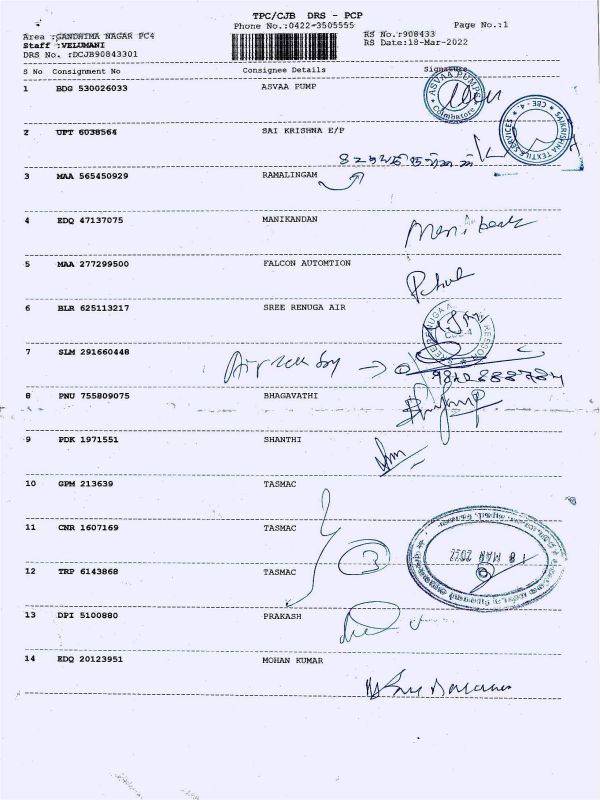 TPC/CJB DRS - PCP
Phone No.:0422-3505555
Page No.:1
Area :GANDHIMA NAGAR PC4
RS No.:908433
Staff :VELUMANI
RS Date:18-Mar-2022
DRS No. :DCJB90843301
S No Consignment No Consignee Details Signature
1 BDG 530026033 ASVAA PUMP
ASVAA PUMPS
Coimbatore
2 UPT 6038564 SAI KRISHNA E/P
SAIKRISHNA TEXTILE SERVICES ★ CBE - 4 ★
3 MAA 565450929 RAMALINGAM
4 EDQ 47137075 MANIKANDAN
5 MAA 277299500 FALCON AUTOMTION
6 BLR 625113217 SREE RENUGA AIR
7 SLM 291660448
8 PNU 755809075 BHAGAVATHI
9 PDK 1971551 SHANTHI
10 GPM 213639 TASMAC
11 CNR 1607169 TASMAC
3
18 MAR 2022
12 TRP 6143868 TASMAC
13 DPI 5100880 PRAKASH
14 EDQ 20123951 MOHAN KUMAR